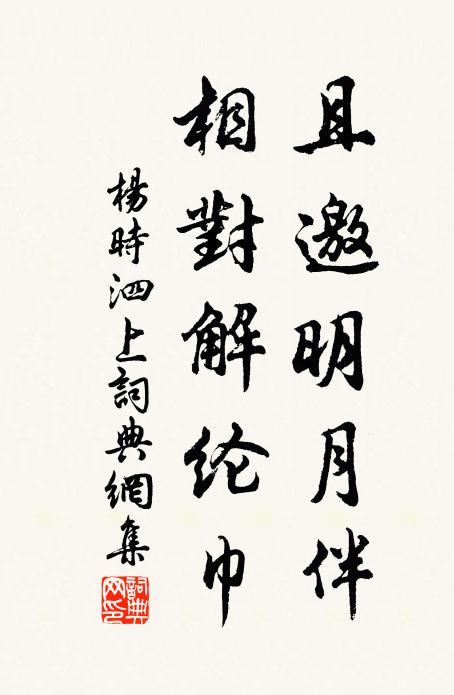 且邀明月伴
相對解纶巾
楊時泗上詞典網集
詞典网印